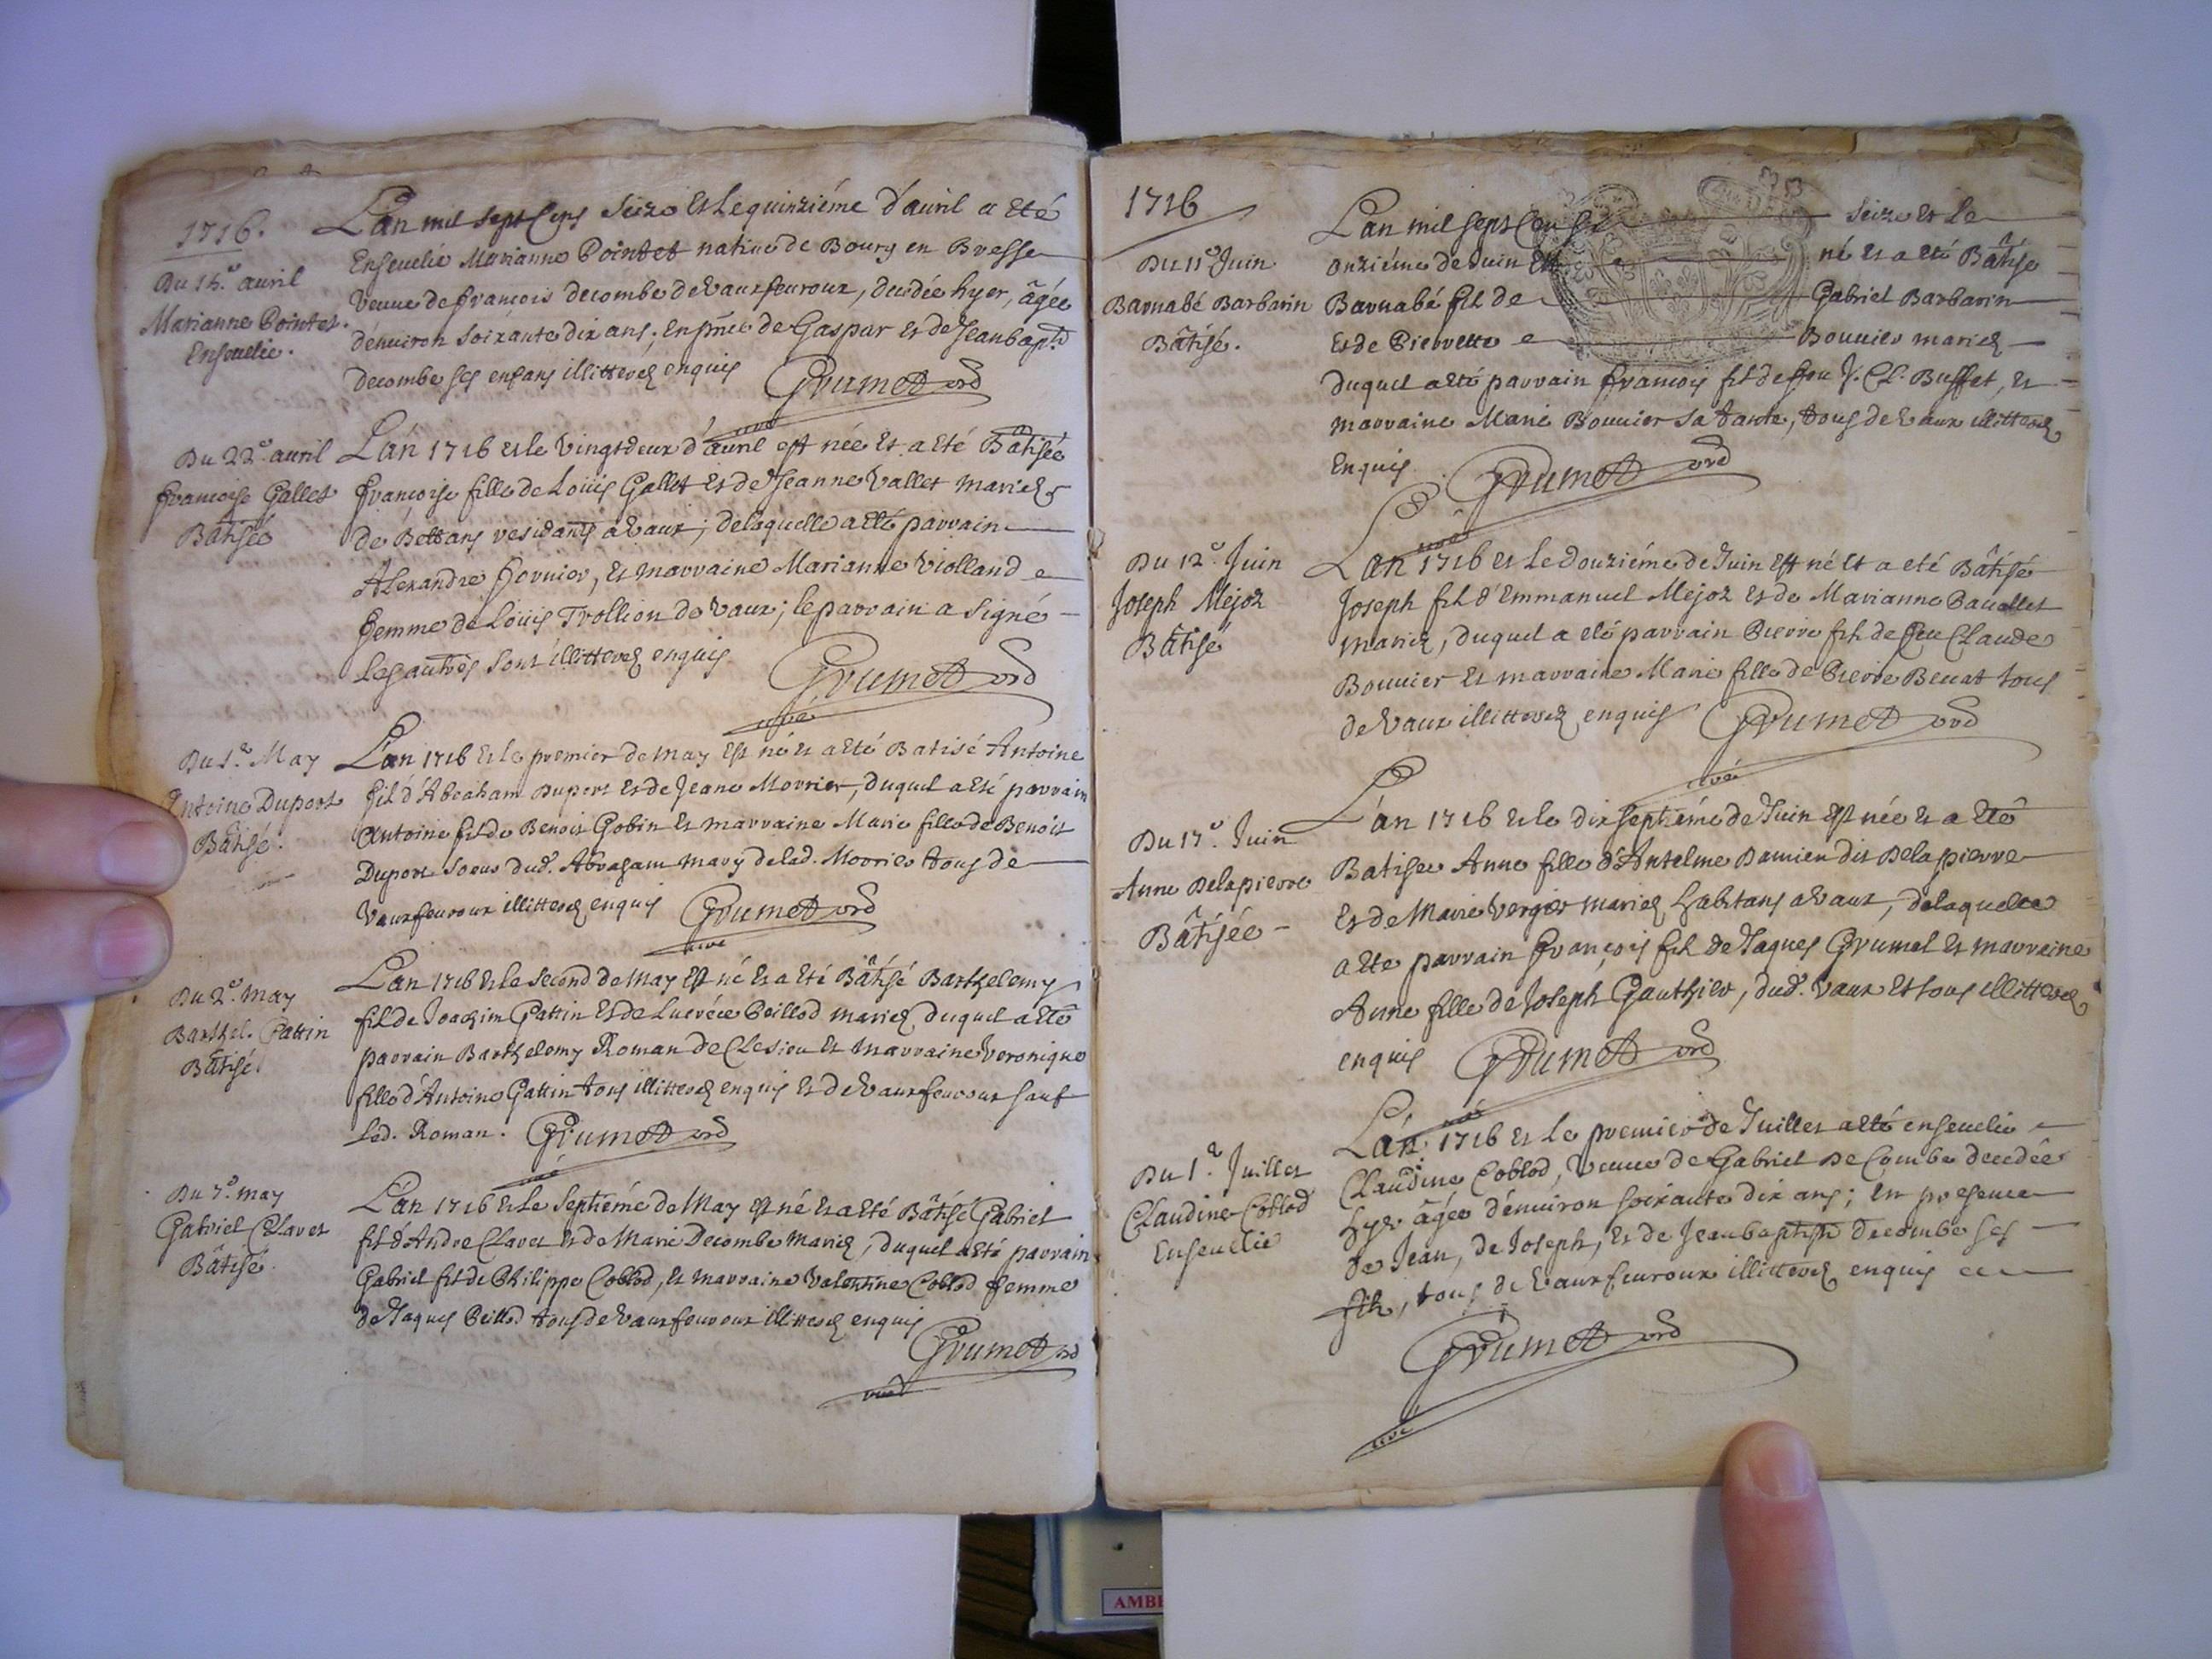 1716.
Du 15.e avril
Marianne Pointet
Enseuelie.
L'an mil sept Cens Seize Et Le quinziéme d'auril a Eté
Enseuelie Marianne Pointet natiue de Bourg en Bresse
Veuue de francois decombe de Vauxfeuroux, decedée hyer, âgée
d'enuiron soixante dix ans; En pñce de Gaspar Et de Jeanbapte
decombe ses enfans illitterez enquis Grumet
Du 22.e auril
francoise Gallet
Bâtisée
L'an 1716 et le vingt deux d'auril est née Et a Eté Bâtisée
francoise fille de Loüis Gallet Et de Jeanne Vallet mariez
de Bettans residants a Vaux; de laquelle a Eté parrain
Alexandre fornier, Et marraine Marianne Violland
femme de Loüis Trollion de Vaux; le parrain a signé
Les autres sont illitterez enquis Grumet
Du 1.er May
Antoine Duport
Bâtisé.
L'an 1716 Et le premier de may Est né Et a Eté Batisé Antoine
fil d'Abraham Duport Et de Jeane Morrier, duquel a Eté parrain
Antoine fil de Benoit Gobin Et marraine Marie fille de Benoit
Duport soeur dud. Abraham mary de lad. Morrier tous de
Vauxfeuroux illitterez enquis Grumet
Du 2.e may
Barthel. Gattin
Bâtisé.
L'an 1716 Et Le Second de May Est né Et a Eté Bâtisé Barthelemy
fil de Joachim Gattin Et de Lucréce Peillod mariez duquel a Eté
parrain Barthelemy Roman de Clesieu Et marraine Veronique
fille d'Antoine Gattin tous illitterez enquis Et de Vauxfeuroux sauf
Led. Roman. Grumet
Du 7.e may
Gabriel Clavet
Bâtisé.
L'an 1716 Et Le Septiéme de May Est né Et a Eté Bâtisé Gabriel
fil d'Andre Clavet Et de Marie Decombe mariez, duquel a Eté parrain
Gabriel fil de Philippe Coblod, Et marraine Valentine Coblod femme
de Jaques Peillod tous de Vauxfeuroux illitterez enquis
Grumet
1716
Du 11.e Juin
Barnabé Barbarin
Bâtisé.
L'an mil sept Cen Seize Et Le
onziéme de Juin Est né Et a Eté Bâtisé
Barnabé fil de Gabriel Barbarin
Et de Pierrette Bouuier mariez
duquel a Eté parrain francois fil de feu J. Cl. Buffet, Et
marraine Marie Bouuier sa tante, tous de Vaux illitterez
Enquis Grumet
Du 12.e Juin
Joseph Mejoz
Bâtisé
L'an 1716 Et Le douziéme de Juin Est né Et a eté Bâtisé
Joseph fil d'Emmanuel Mejoz Et de Marianne
mariez, duquel a eté parrain Pierre fil de feu Claude
Bouuier Et marraine Marie fille de Pierre Beuat tous
de Vaux illitterez enquis Grumet
Du 17.e Juin
Anne Delapierre
Bâtisée
L'an 1716 Et le dix septiéme de Juin Est née Et a Eté
Batisée Anne fille d'Antelme Damien dit Delapierre
Et de Marie Verger mariez habitans a Vaux, de laquelle
a Ete parrain françois fil de Jaques Grumet Et marraine
Anne fille de Joseph Gauthier, dud. Vaux Et tous illitterez
enquis Grumet
Du 1.er Juillet
Claudine Coblod
Enseuelie
L'an 1716 Et Le premier de Juillet a Eté enseuelie
Claudine Coblod, Veuue de Gabriel De Combe decedée
hyer âgée d'enuiron soixante dix ans; En presence
de Jean, de Joseph, Et de Jeanbaptiste decombe ses
fils, tous de Vauxfeuroux illitterez enquis
Grumet
AMBE